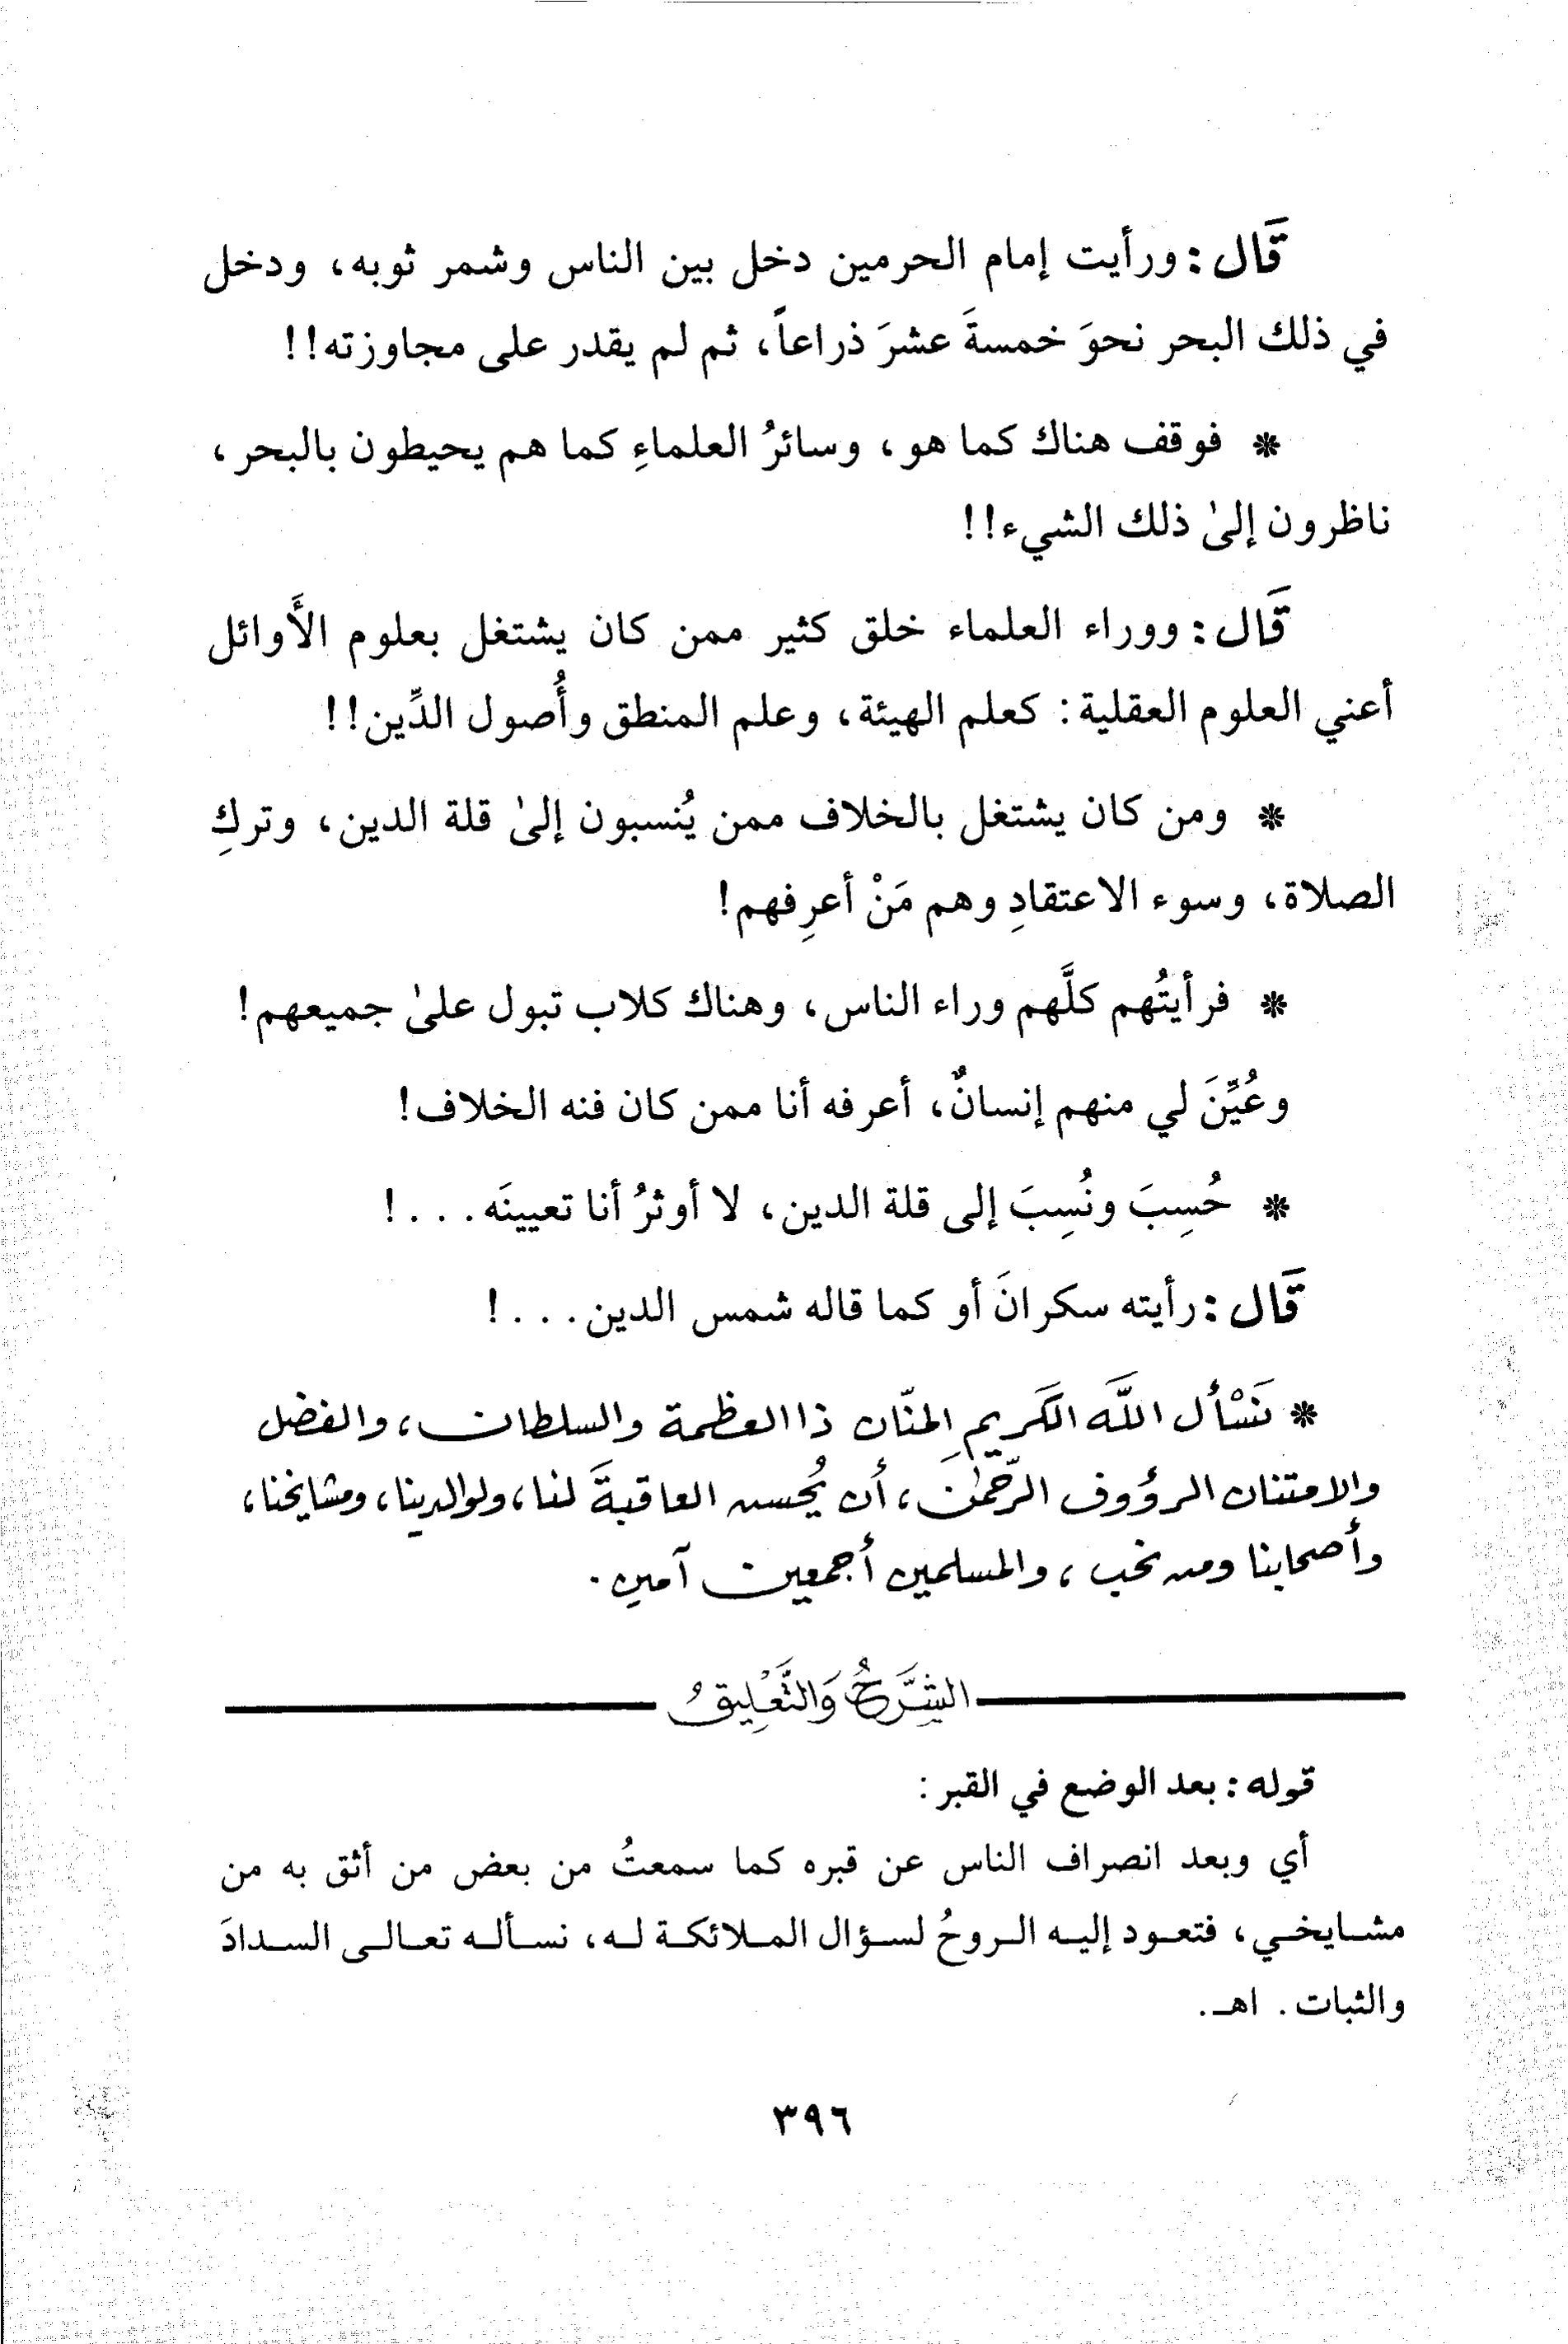 قَال: ورأيت إمام الحرمين دخل بين الناس وشمر ثوبه، ودخل
في ذلك البحر نحوَ خمسةَ عشرَ ذراعاً، ثم لم يقدر على مجاوزته!!
* فوقف هناك كما هو، وسائرُ العلماءِ كما هم يحيطون بالبحر،
ناظرون إلىٰ ذلك الشيء!!
قَال: ووراء العلماء خلق كثير ممن كان يشتغل بعلوم الأَوائل
أعني العلوم العقلية: كعلم الهيئة، وعلم المنطق وأُصول الدِّين!!
* ومن كان يشتغل بالخلاف ممن يُنسبون إلىٰ قلة الدين، وتركِ
الصلاة، وسوء الاعتقادِ وهم مَنْ أعرِفهم!
* فرأيتُهم كلَّهم وراء الناس، وهناك كلاب تبول علىٰ جميعهم!
وعُيِّنَ لي منهم إنسانٌ، أعرفه أنا ممن كان فنه الخلاف!
* حُسِبَ ونُسِبَ إلى قلة الدين، لا أوثرُ أنا تعيينَه...!
قَال: رأيته سكرانَ أو كما قاله شمس الدين...!
* نَسْأل اللَّه الكَريمِ المنّان ذا العظمة والسلطان، والفضل
والامتنان الرؤوف الرّحمٰن، أن يُحسن العاقبةَ لنا، ولوالدينا، ومشايخنا،
وأصحابنا ومن نحب، والمسلمين أجمعين آمين.
الشَّرحُ وَالتَّعْلِيقُ
قوله: بعد الوضع في القبر:
أي وبعد انصراف الناس عن قبره كما سمعتُ من بعض من أثق به من
مشايخي، فتعود إليه الروحُ لسؤال الملائكة له، نسأله تعالى السدادَ
والثبات. اهـ.
٣٩٦